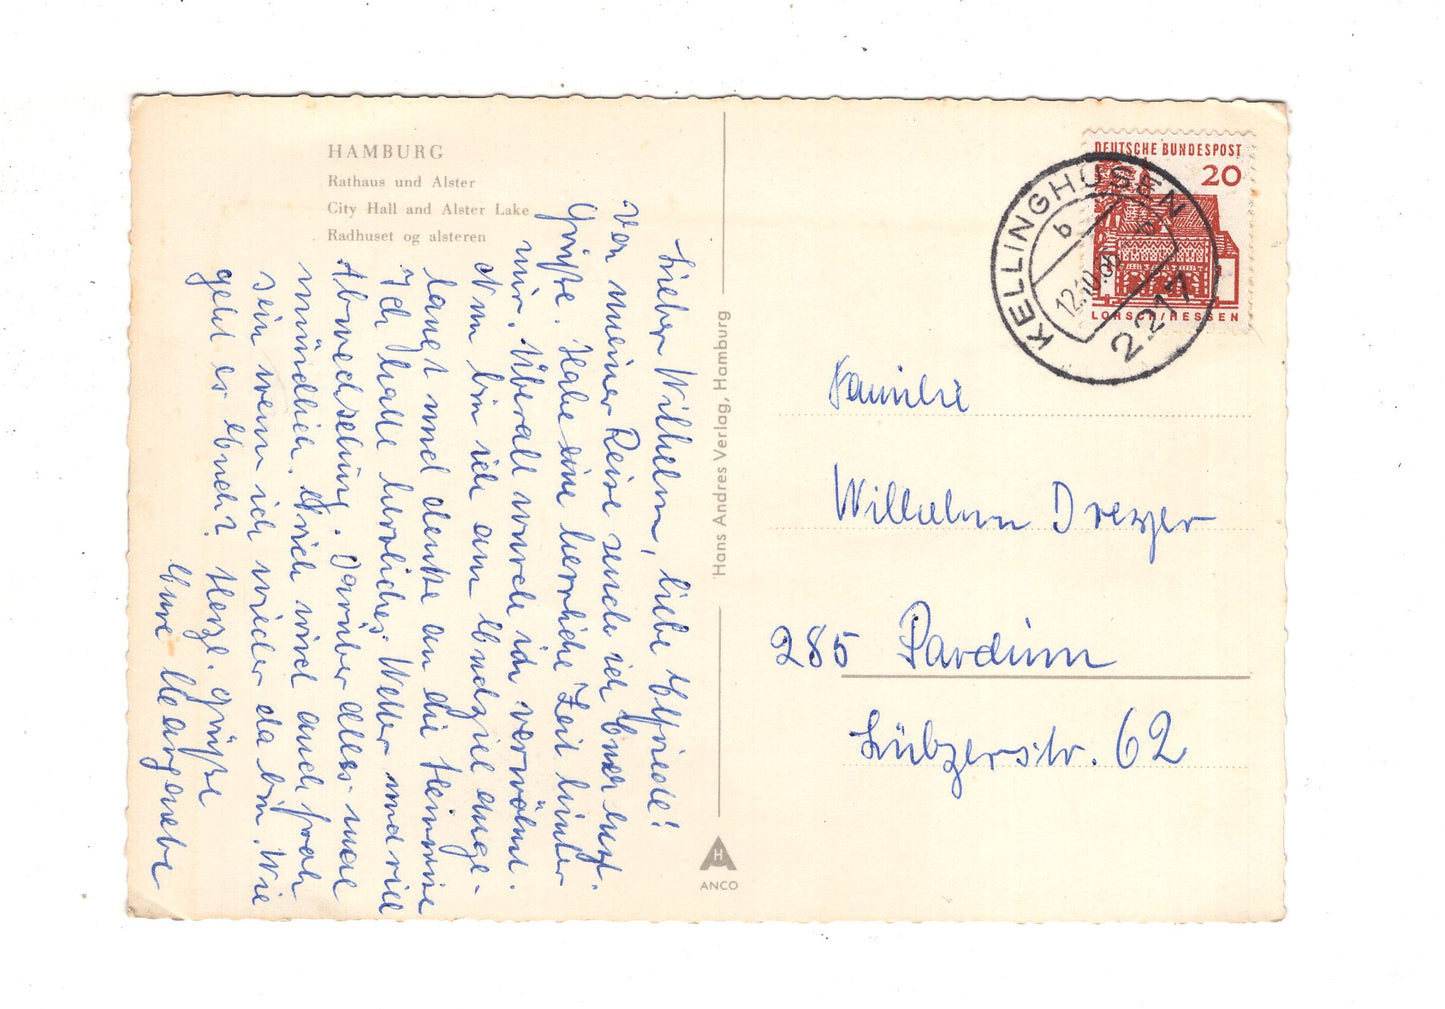 HAMBURG
Rathaus und Alster
City Hall and Alster Lake
Radhuset og alsteren
Lieber Wilhelm, liebe Elfriede!
Von meiner Reise sende ich Euch herzl.
Grüße. Habe eine herrliche Zeit hinter
mir. Überall wurde ich verwöhnt.
Nun bin ich am Endziel ange-
langt und denke an die Heimreise
Ich hatte herrliches Wetter und viel
Abwechselung. Darüber alles mal
mündlich. Mich wird auch froh
sein wenn ich wieder da bin. Wie
geht es Euch? Herzl. Grüße
Eure
Hans Andres Verlag, Hamburg
H
ANCO
DEUTSCHE BUNDESPOST
20
LORSCH/HESSEN
KELLINGHUSEN
b b
12.10.66
2217
Familie
Wilhelm Dreyer
285 Pardim
Lübzerstr. 62